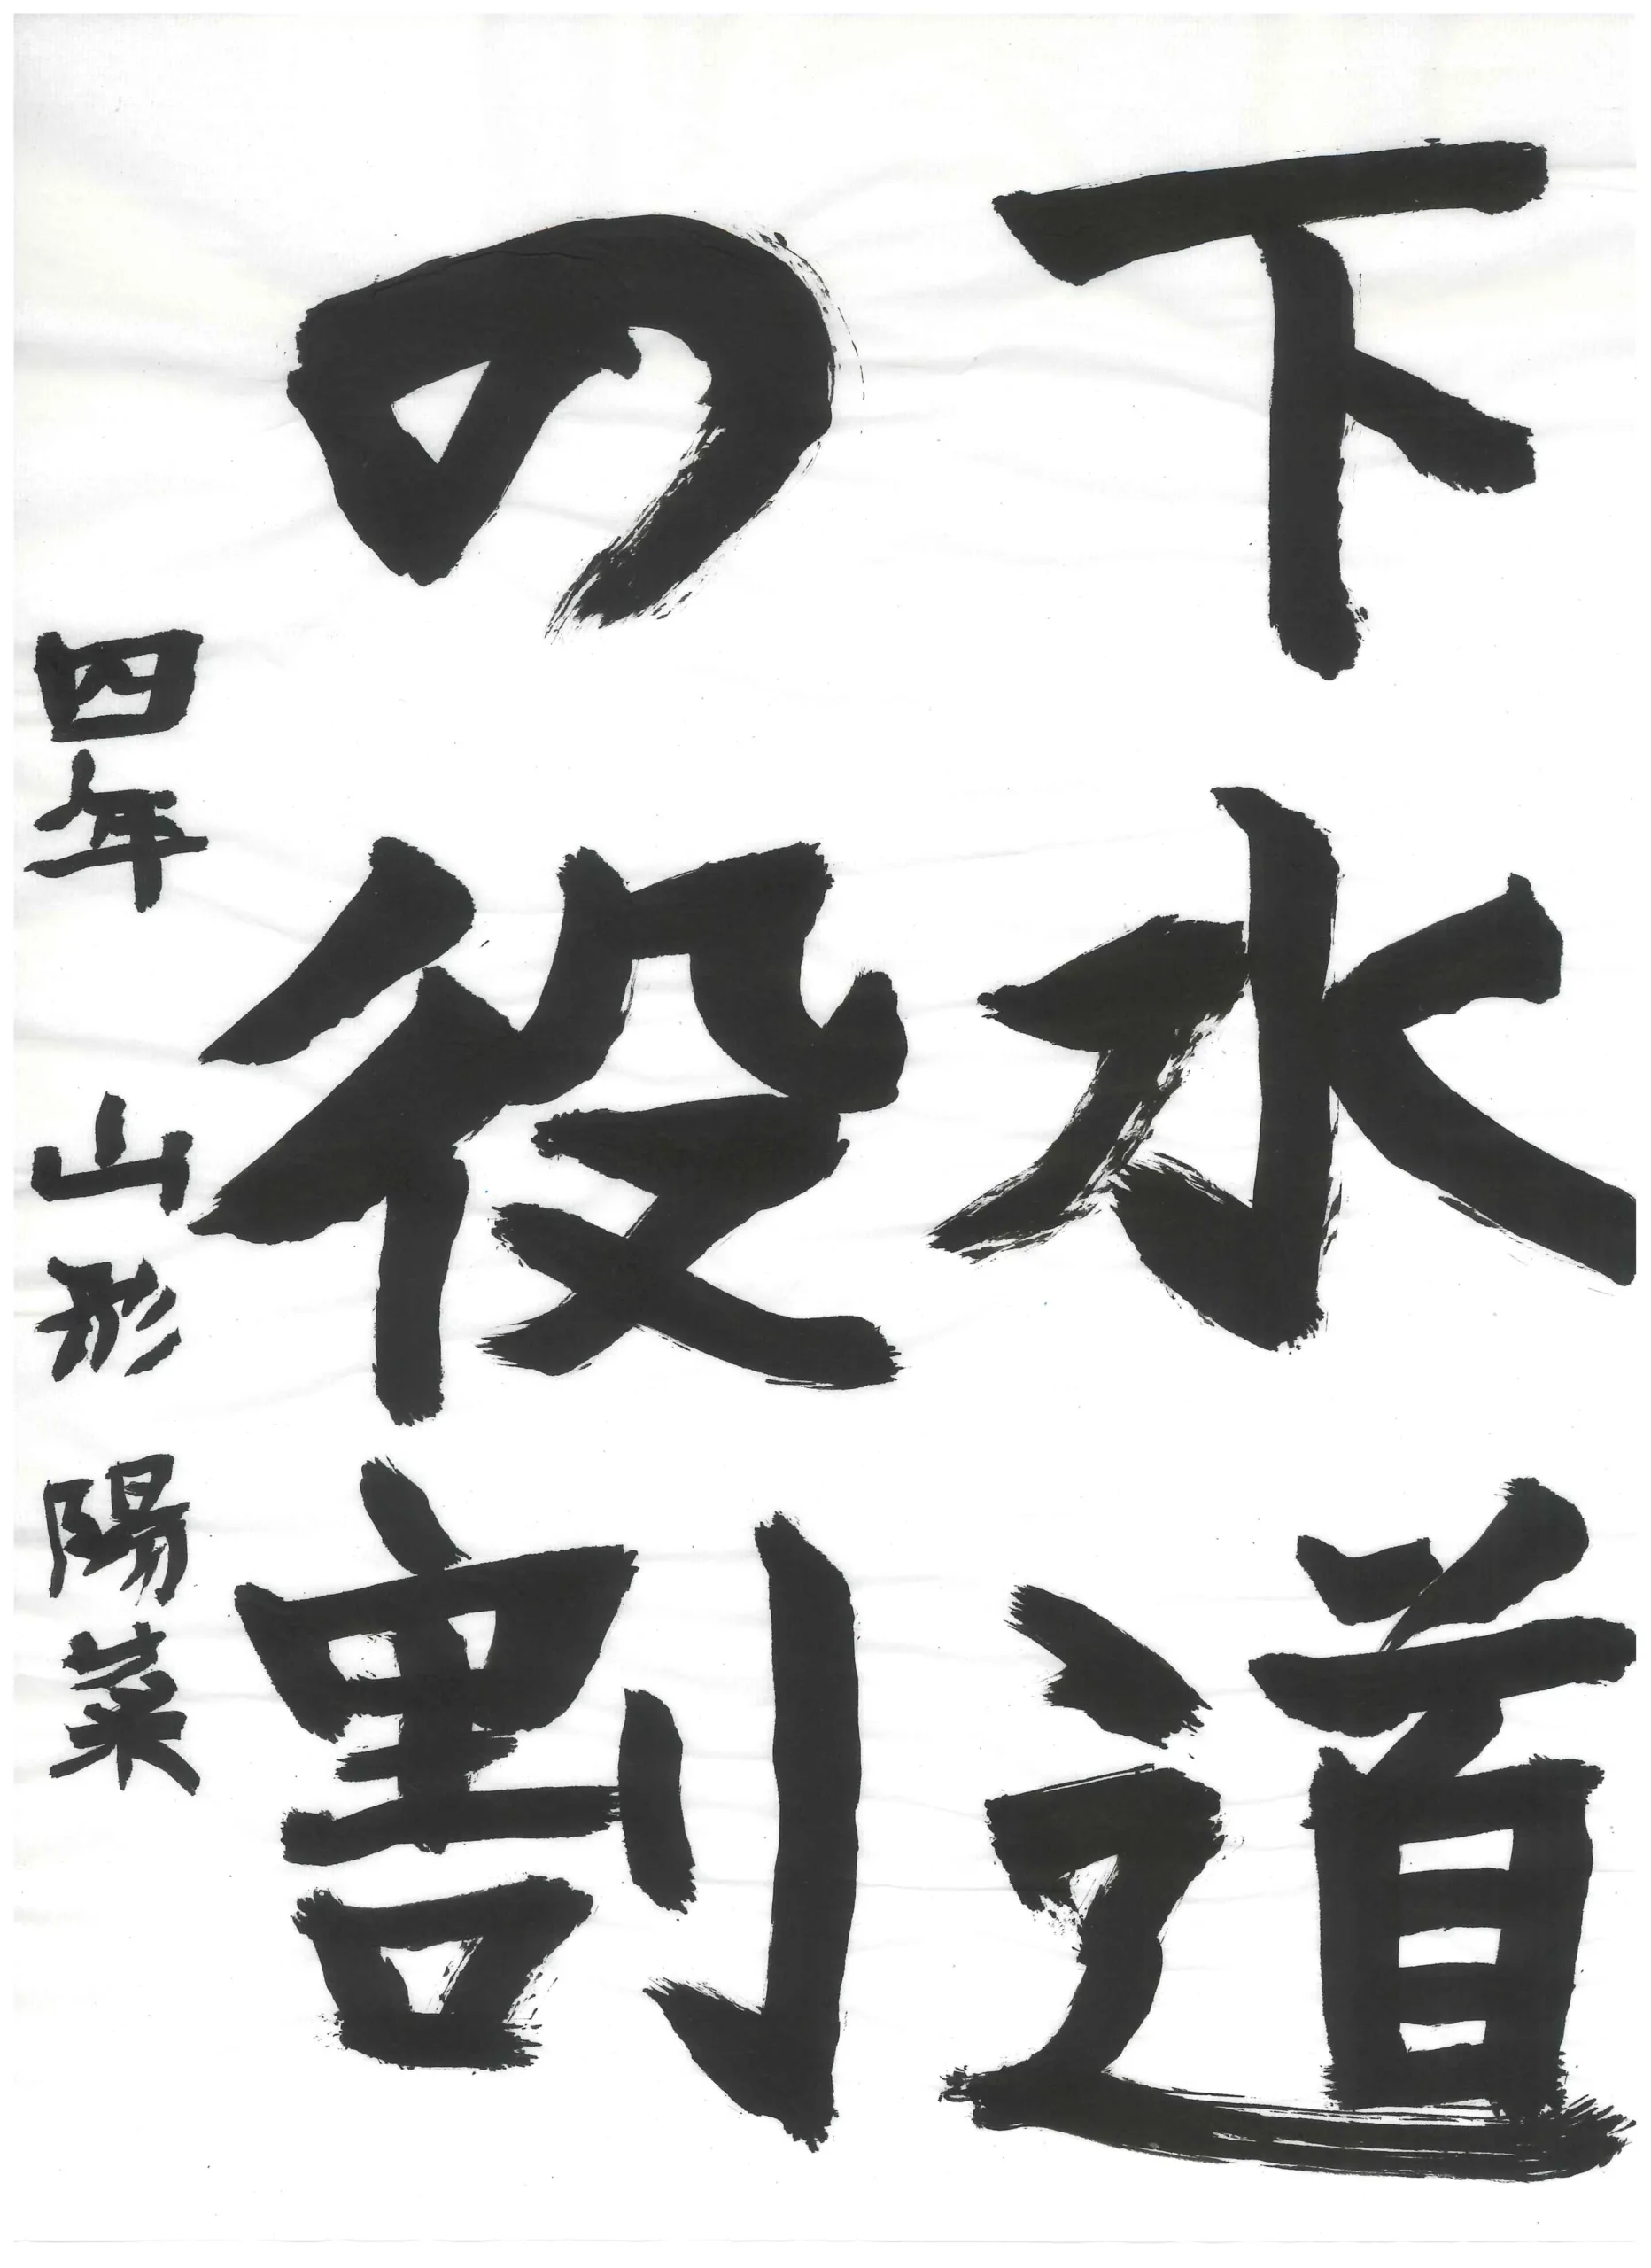 下水道
の役割
四年 山形 陽菜